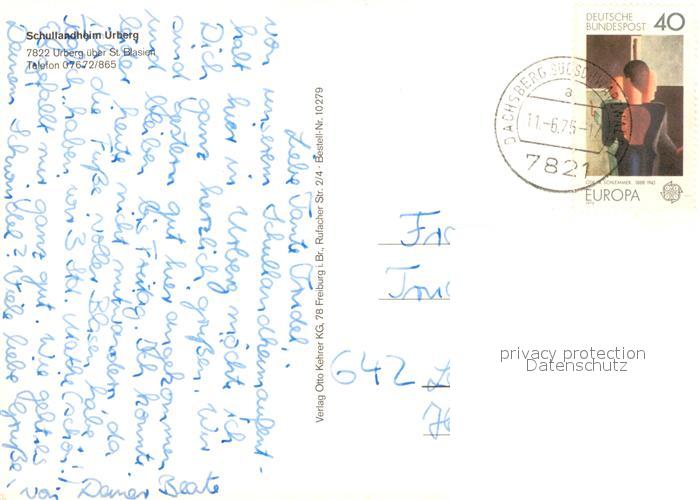 Schullandheim Urberg
7822 Urberg über St. Blasien
Telefon 07672/865
Liebe Tante Trudel!
von unserem Schullandheimaufent-
halt hier in Urberg möchte ich
Dich ganz herzlich grüßen. Wir
sind gestern gut hier angekommen
und bleiben bis Freitag. Ich konnte
leider heute nicht mitwandern, da
ich die Füße voller Blasen habe.
haben wir 3 Std. Mathe (schön!)
gefällt mir ganz gut. Wie geht es
Deinem ? Viele liebe Grüße,
von Deiner Beate
Verlag Otto Kehrer KG, 78 Freiburg i. Br., Rufacher Str. 2/4 · Bestell-Nr. 10 279
DEUTSCHE
BUNDESPOST 40
SCHLEMMER 1888-1943
EUROPA
DACHSBERG
a
11.-6.75-17
7821
642
privacy protection
Datenschutz